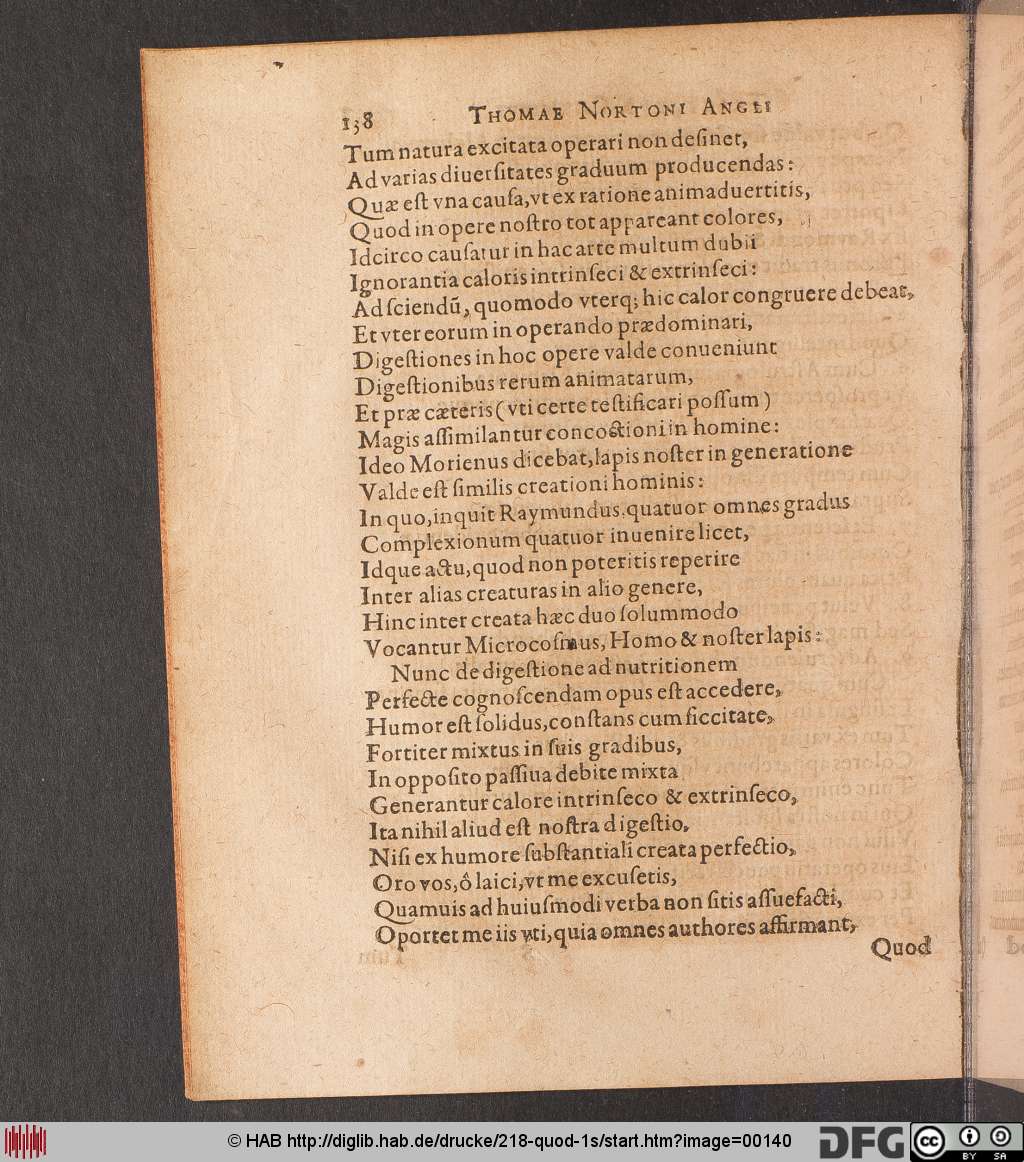 138 THOMAE NORTONI ANGLI
Tum natura excitata operari non deſinet,
Ad varias diuerſitates graduum producendas:
Quæ eſt vna cauſa, vt ex ratione animaduertitis,
Quod in opere noſtro tot appareant colores,
Idcirco cauſatur in hac arte multum dubii
Ignorantia caloris intrinſeci & extrinſeci:
Ad ſciendũ, quomodo vterq; hic calor congruere debeat,
Et vter eorum in operando prædominari,
Digeſtiones in hoc opere valde conueniunt
Digeſtionibus rerum animatarum,
Et præ cæteris (vti certe teſtificari poſſum)
Magis aſſimilantur concoctioni in homine:
Ideo Morienus dicebat, lapis noſter in generatione
Valde eſt ſimilis creationi hominis:
In quo, inquit Raymundus. quatuor omnes gradus
Complexionum quatuor inuenire licet,
Idque actu, quod non poteritis reperire
Inter alias creaturas in alio genere,
Hinc inter creata hæc duo ſolummodo
Vocantur Microcoſmus, Homo & noſter lapis:
Nunc de digeſtione ad nutritionem
Perfecte cognoſcendam opus eſt accedere,
Humor eſt ſolidus, conſtans cum ſiccitate,
Fortiter mixtus in ſuis gradibus,
In oppoſito paſſiua debite mixta
Generantur calore intrinſeco & extrinſeco,
Ita nihil aliud eſt noſtra digeſtio,
Niſi ex humore ſubſtantiali creata perfectio,
Oro vos, ô laici, vt me excuſetis,
Quamuis ad huiuſmodi verba non ſitis aſſuefacti,
Oportet me iis vti, quia omnes authores affirmant,
Quod
© HAB http://diglib.hab.de/drucke/218-quod-1s/start.htm?image=00140
DFG
cc BY SA